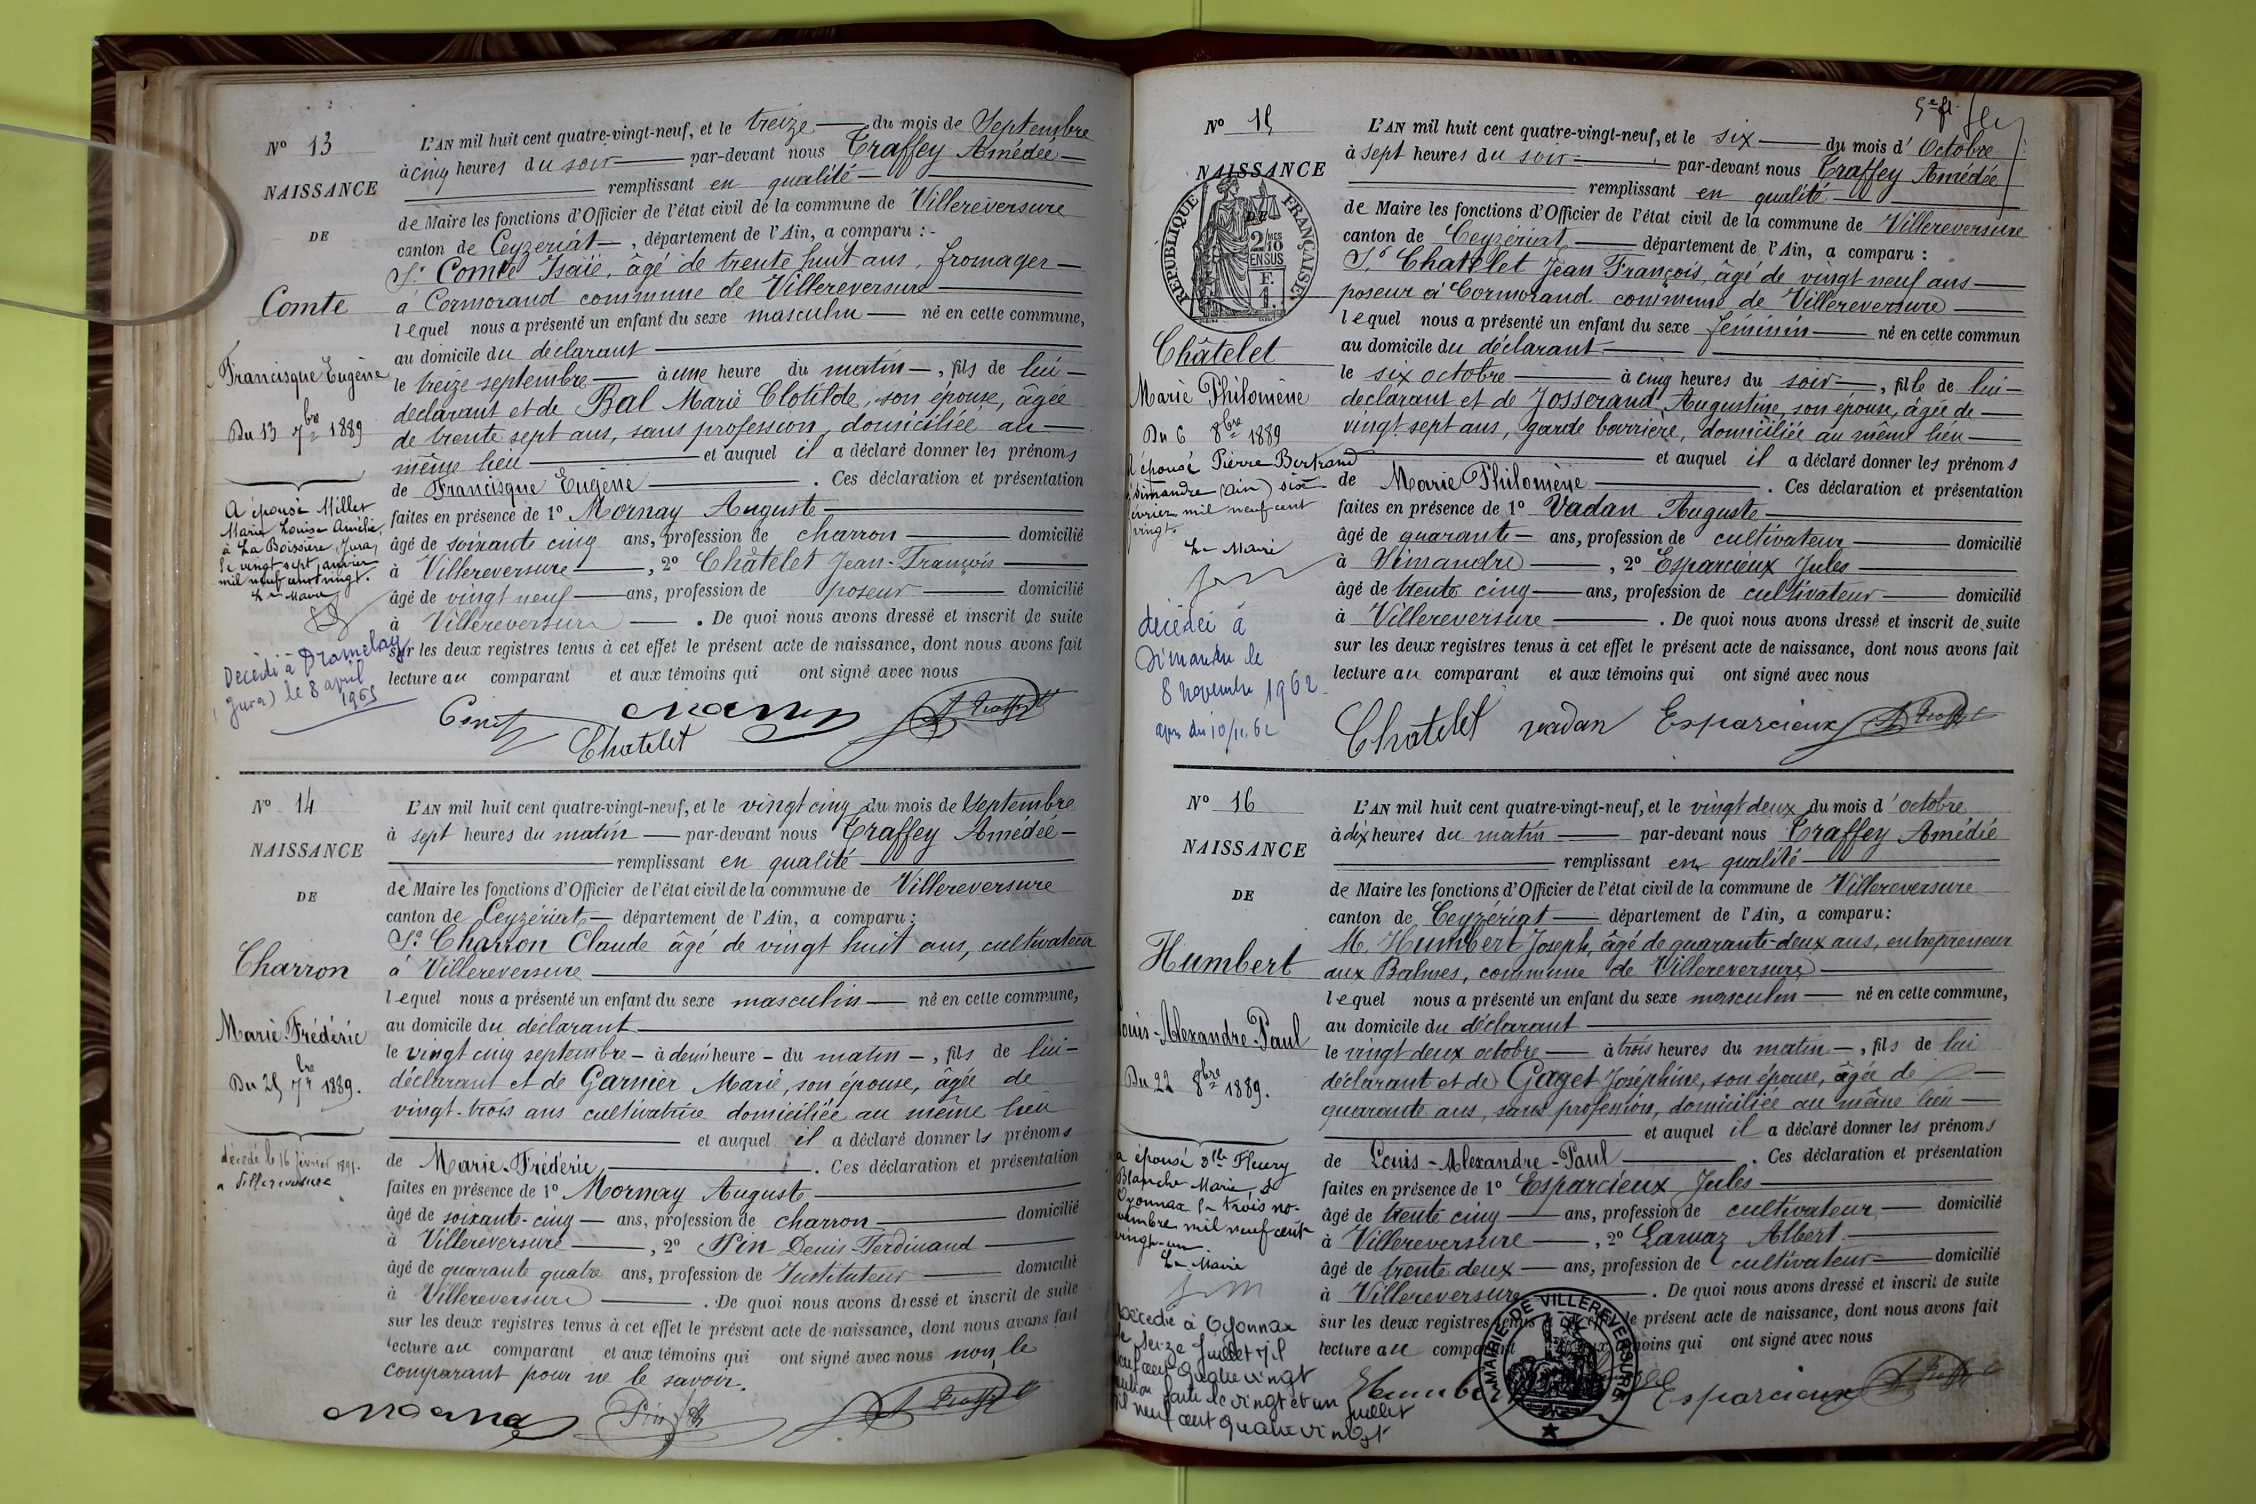 Nº 13
NAISSANCE
DE
Comte
Francisque Eugène
Du 13 7bre 1889
A épousé Millet
Marie Louise Amélie
à La Boissière, Jura,
le vingt sept janvier
mil neuf cent vingt.
Le Maire
Décédé à Dramelay
(Jura) le 8 avril
1965
L'AN mil huit cent quatre-vingt-neuf, et le treize du mois de Septembre
à cinq heures du soir par-devant nous Traffey Amédée
remplissant en qualité
de Maire les fonctions d'Officier de l'état civil de la commune de Villereversure
canton de Ceyzériat, département de l'Ain, a comparu :
Sr Comte Isaïe, âgé de trente huit ans, fromager
à Cormorand commune de Villereversure
lequel nous a présenté un enfant du sexe masculin né en cette commune,
au domicile du déclarant
le treize septembre à une heure du matin, fils de lui
déclarant et de Bal Marie Clotilde, son épouse, âgée
de trente sept ans, sans profession, domiciliée au
même lieu et auquel il a déclaré donner les prénoms
de Francisque Eugène. Ces déclaration et présentation
faites en présence de 1º Mornay Auguste
âgé de soixante cinq ans, profession de charron domicilié
à Villereversure, 2º Châtelet Jean-François
âgé de vingt neuf ans, profession de poseur domicilié
à Villereversure. De quoi nous avons dressé et inscrit de suite
sur les deux registres tenus à cet effet le présent acte de naissance, dont nous avons fait
lecture au comparant et aux témoins qui ont signé avec nous
Chatelet
Nº 14
NAISSANCE
DE
Charron
Marie-Frédéric
Du 25 7bre 1889.
décédé le 16 février 1891.
a Villereversure
L'AN mil huit cent quatre-vingt-neuf, et le vingt cinq du mois de Septembre
à sept heures du matin par-devant nous Traffey Amédée
remplissant en qualité
de Maire les fonctions d'Officier de l'état civil de la commune de Villereversure
canton de Ceyzériat département de l'Ain, a comparu :
Sr Charron Claude âgé de vingt huit ans, cultivateur
à Villereversure
lequel nous a présenté un enfant du sexe masculin né en cette commune,
au domicile du déclarant
le vingt cinq septembre à demi heure du matin, fils de lui
déclarant et de Garnier Marie, son épouse, âgée de
vingt-trois ans cultivatrice domiciliée au même lieu
et auquel il a déclaré donner ls prénoms
de Marie-Frédéric. Ces déclaration et présentation
faites en présence de 1º Mornay Auguste
âgé de soixante-cinq ans, profession de charron domicilié
à Villereversure, 2º Pin Denis-Ferdinand
âgé de quarante quatre ans, profession de Instituteur domicilié
à Villereversure. De quoi nous avons dressé et inscrit de suite
sur les deux registres tenus à cet effet le présent acte de naissance, dont nous avons fait
lecture au comparant et aux témoins qui ont signé avec nous non, le
comparant pour ne le savoir.
5e ft.
Nº 15
NAISSANCE
DE
RÉPUBLIQUE FRANÇAISE
2 MES
10
EN SUS
F.
1.
Châtelet
Marie Philomène
Du 6 8bre 1889
A épousé Pierre Bertrand
Simandre (Ain) six
février mil neuf cent
vingt.
Le Maire
décédée à
Simandre le
8 novembre 1962
avis du 10/11.62
L'AN mil huit cent quatre-vingt-neuf, et le six du mois d'Octobre
à sept heures du soir par-devant nous Traffey Amédée
remplissant en qualité
de Maire les fonctions d'Officier de l'état civil de la commune de Villereversure
canton de Ceyzériat département de l'Ain, a comparu :
Sr Chatelet Jean François, âgé de vingt neuf ans
poseur à Cormorand commune de Villereversure
lequel nous a présenté un enfant du sexe féminin né en cette commun
au domicile du déclarant
le six octobre à cinq heures du soir, fille de lui
déclarant et de Josserand Augustine, son épouse, âgée de
vingt sept ans, garde barrière, domiciliée au même lieu
et auquel il a déclaré donner les prénoms
de Marie Philomène. Ces déclaration et présentation
faites en présence de 1º Vadan Auguste
âgé de quarante ans, profession de cultivateur domicilié
à Simandre, 2º Esparcieux Jules
âgé de trente cinq ans, profession de cultivateur domicilié
à Villereversure. De quoi nous avons dressé et inscrit de suite
sur les deux registres tenus à cet effet le présent acte de naissance, dont nous avons fait
lecture au comparant et aux témoins qui ont signé avec nous
Chatelet vadan Esparcieux
Nº 16
NAISSANCE
DE
Humbert
Louis-Alexandre-Paul
Du 22 8bre 1889.
a épousé Dlle Fleury
Blanche Marie à
Oyonnax le trois no-
vembre mil neuf cent
vingt-un
Le Maire
Décédé à Oyonnax
le seize juillet mil
neuf cent quatre vingt
mention faite le vingt et un juillet
mil neuf cent quatre vingt
L'AN mil huit cent quatre-vingt-neuf, et le vingt deux du mois d'octobre
à dix heures du matin par-devant nous Traffey Amédée
remplissant en qualité
de Maire les fonctions d'Officier de l'état civil de la commune de Villereversure
canton de Ceyzériat département de l'Ain, a comparu :
M. Humbert Joseph, âgé de quarante-deux ans, entrepreneur
aux Balmes, commune de Villereversure
lequel nous a présenté un enfant du sexe masculin né en cette commune,
au domicile du déclarant
le vingt deux octobre à trois heures du matin, fils de lui
déclarant et de Gaget Joséphine, son épouse, âgée de
quarante ans, sans profession, domiciliée au même lieu
et auquel il a déclaré donner les prénoms
de Louis-Alexandre-Paul. Ces déclaration et présentation
faites en présence de 1º Esparcieux Jules
âgé de trente cinq ans, profession de cultivateur domicilié
à Villereversure, 2º Lavaz Albert
âgé de trente deux ans, profession de cultivateur domicilié
à Villereversure. De quoi nous avons dressé et inscrit de suite
sur les deux registres tenus à cet effet le présent acte de naissance, dont nous avons fait
lecture au comparant et aux témoins qui ont signé avec nous
Humbert Esparcieux
MAIRIE DE VILLEREVERSURE